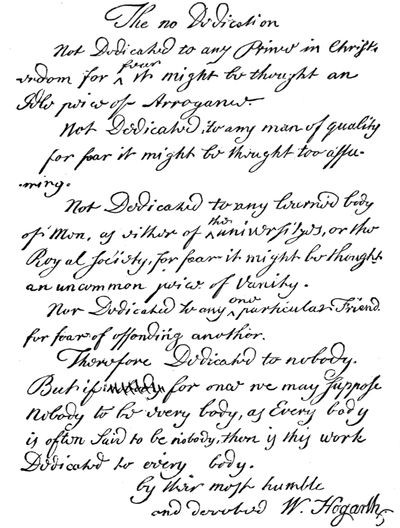 The no Dedication
Not Dedicated to any Prince in Christ-
endom for fear it might be thought an
Idle peice of Arrogance.
Not Dedicated, to any man of quality
for fear it might be thought too assu-
-ming.
Not Dedicated to any learned body
of Men, as either of the universityes, or the
Royal Society, for fear it might be thought
an uncommon peice of Vanity.
Nor Dedicated to any one particular Friend
for fear of offending another.
Therefore Dedicated to nobody.
But if for once we may suppose
Nobody to be every body, as Every body
is often said to be nobody, then is this work
Dedicated to every body.
by their most humble
and devoted W. Hogarth